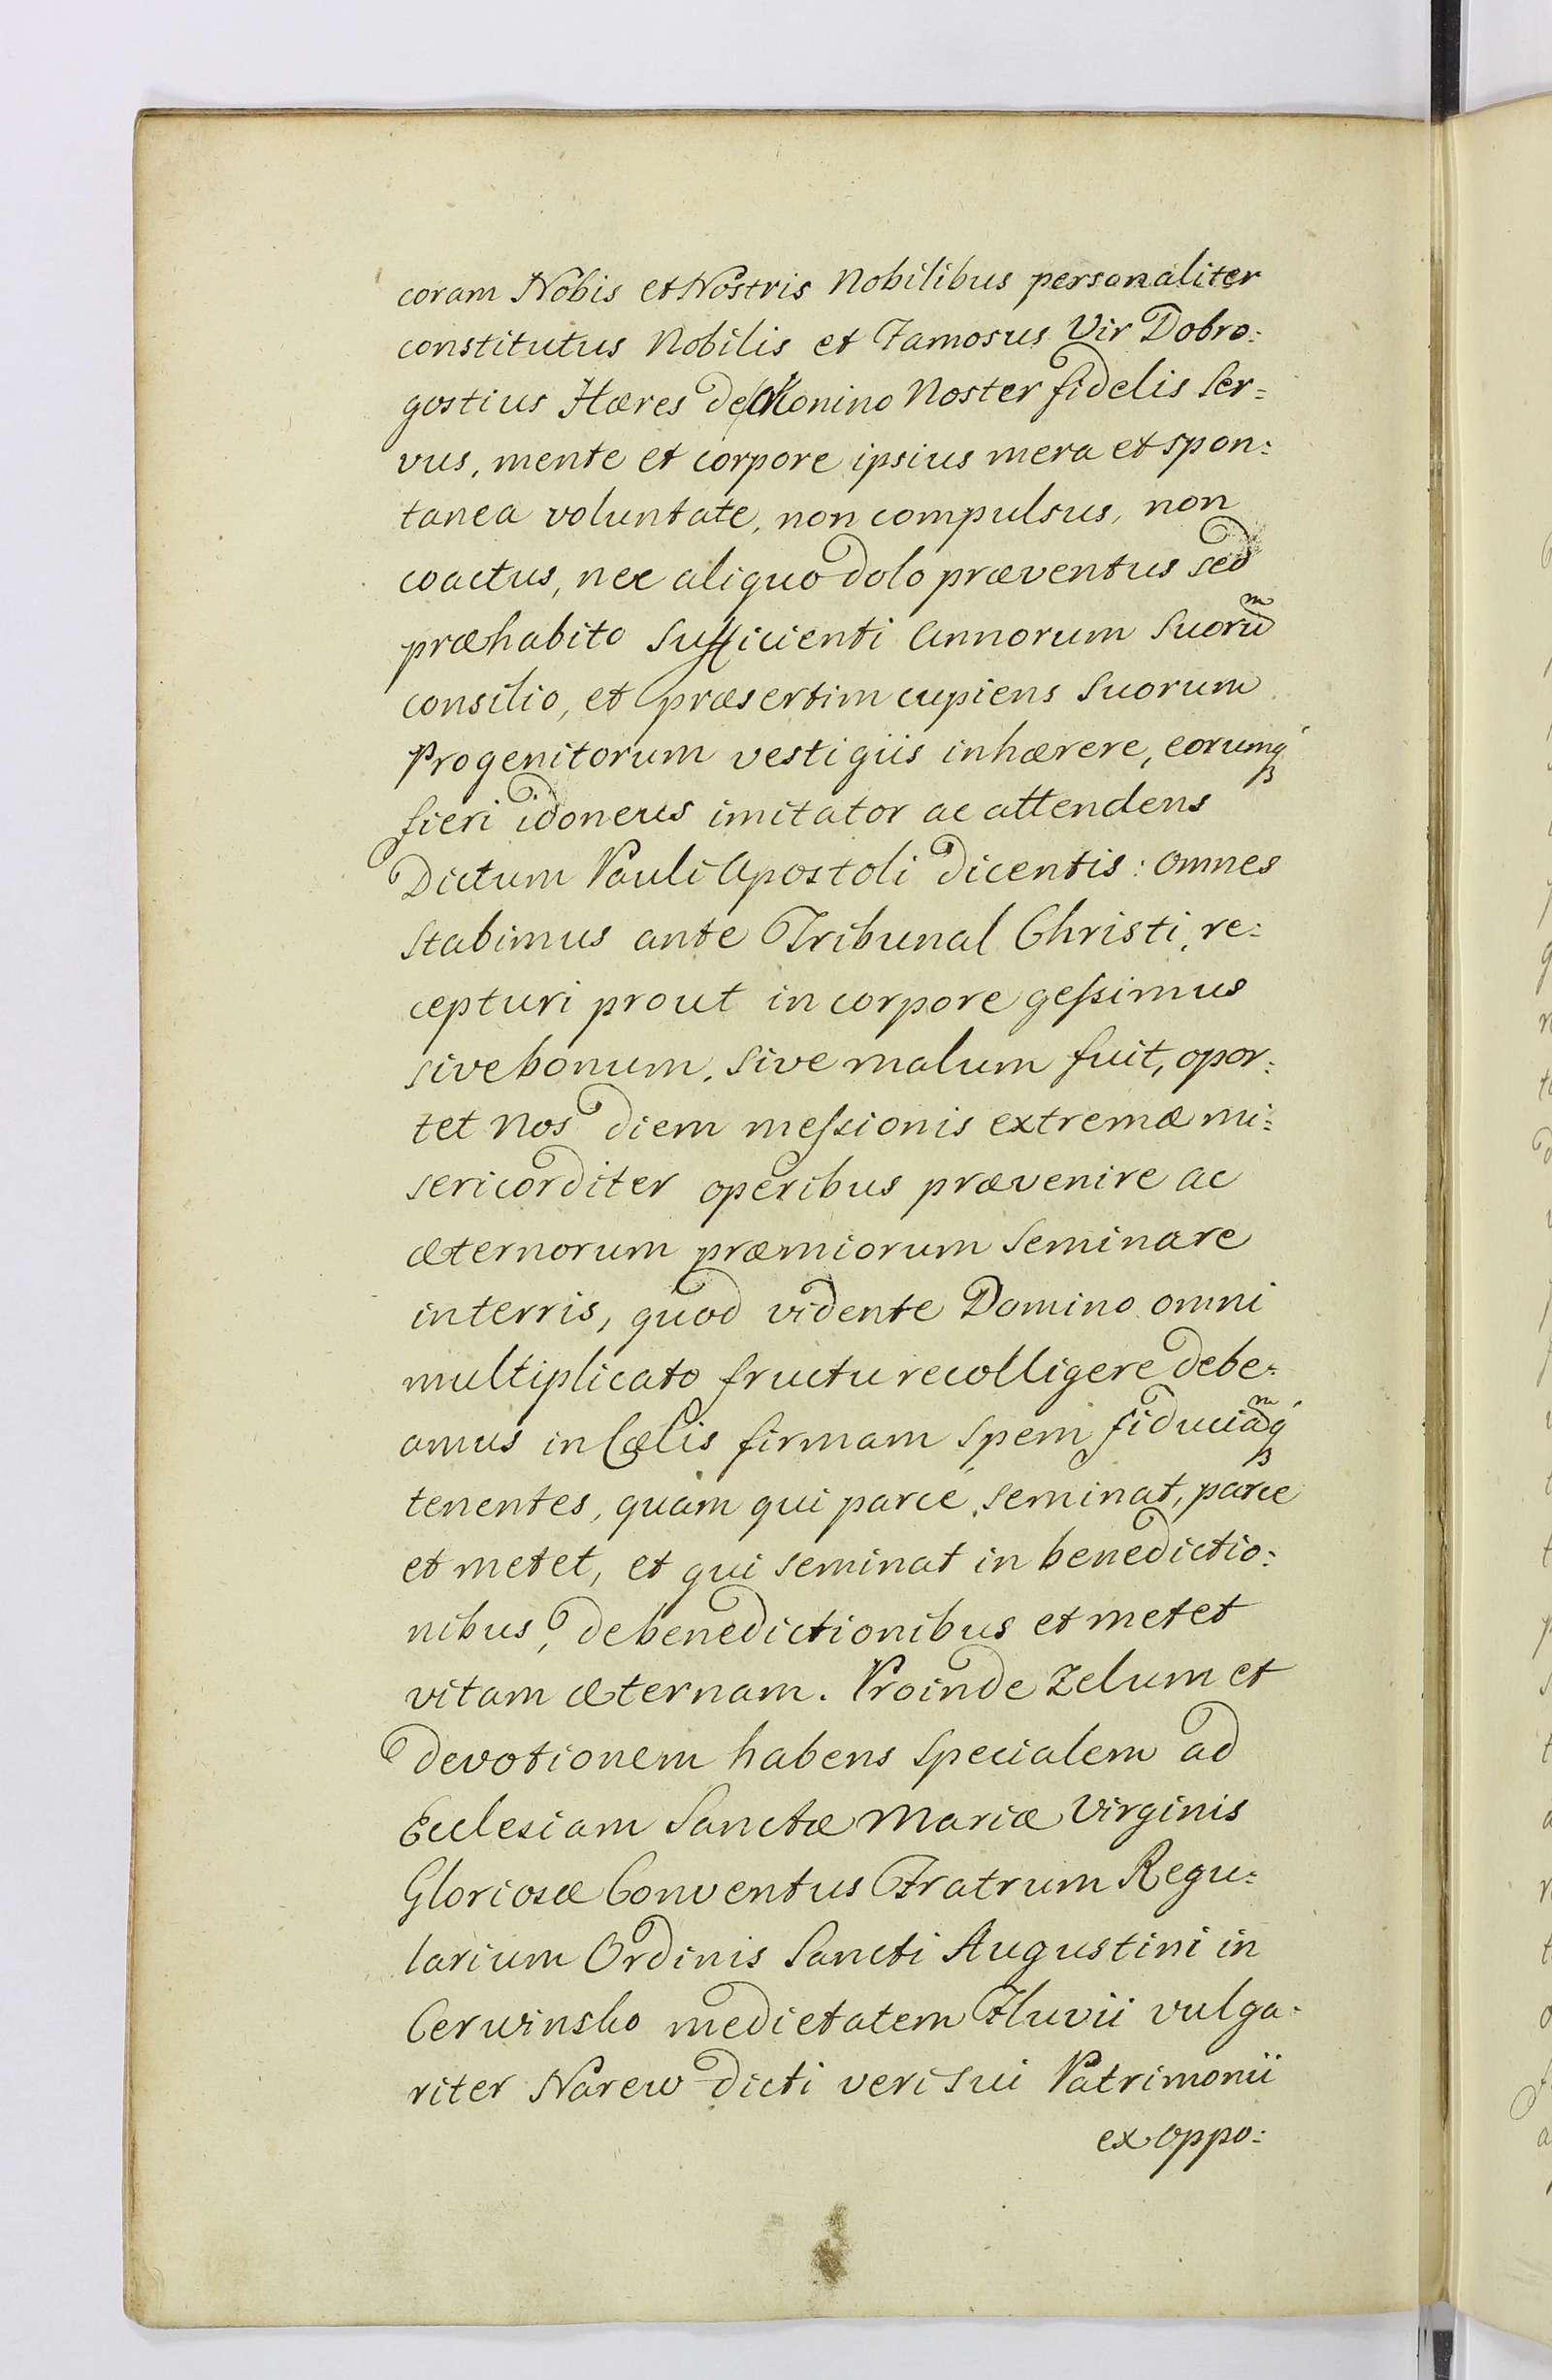 coram Nobis et Nostris Nobilibus personaliter
constitutus Nobilis et Famosus Vir Dobro:
gostius Hæres de Nonino Noster fidelis Ser=
vus, mente et corpore ipsius mera et spon:
tanea voluntate, non compulsus, non
coactus, nec aliquo dolo præventus sed
præhabito sufficienti Annorum Suorum
consilio, et præsertim cupiens Suorum
Progenitorum vestigiis inhærere, eorumq́ꝫ
fieri idoneus imitator ac attendens
Dictum Pauli Apostoli dicentis: omnes
stabimus ante Tribunal Christi, re:
cepturi prout in corpore geſsimus
sive bonum, sive malum fuit, opor:
tet Nos diem meſsionis extremæ mi:
sericorditer operibus prævenire ac
æternorum præmiorum seminare
in terris, quod vidente Domino omni
multiplicato fructu recolligere debe=
amus in Cælis firmam spem fiduciamq́ꝫ
tenentes, quam qui parce seminat, parce
et metet, et qui seminat in benedictio:
nibus, de benedictionibus et metet
vitam æternam. Proinde Zelum et
devotionem habens specialem ad
Ecclesiam Sanctæ Mariæ Virginis
Gloriosæ Conventus Fratrum Regu=
larium Ordinis Sancti Augustini in
Cerwinsko medietatem Fluvii vulga=
riter Narew dicti veri sui Patrimonii
ex oppo: